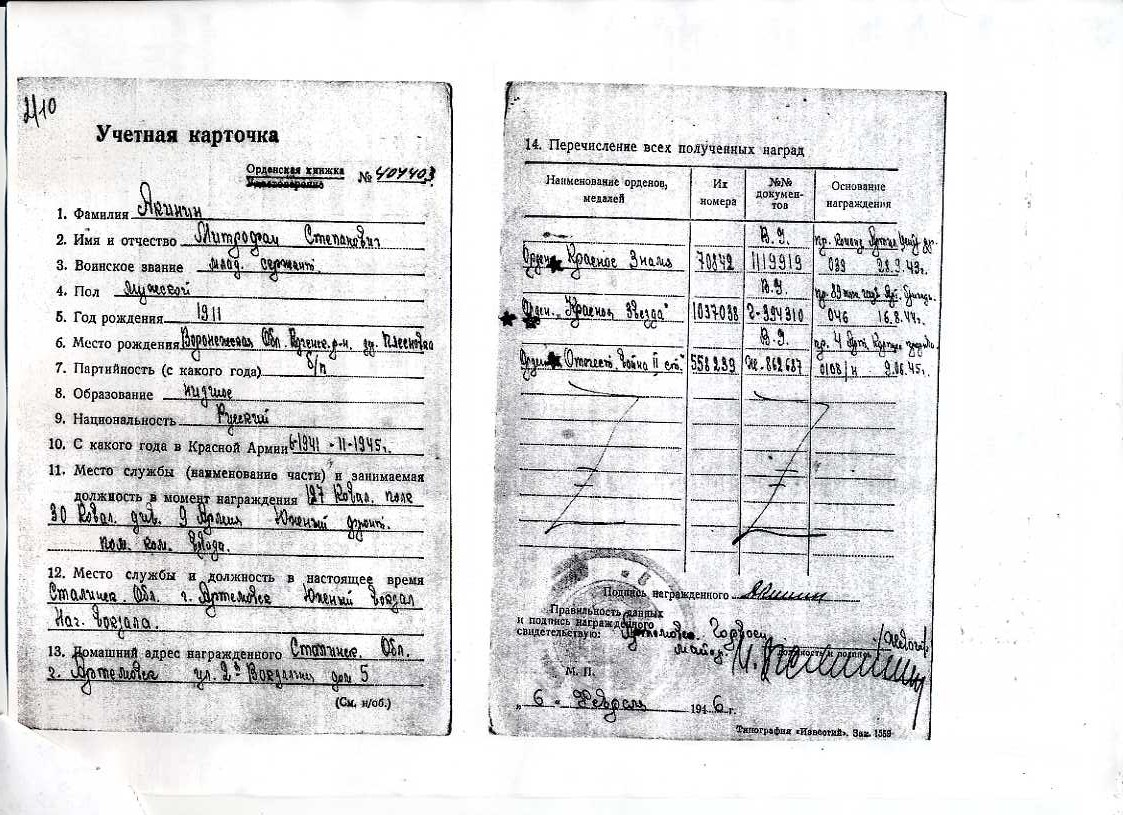 2/10
Учетная карточка
Орденская книжка № 404403
1. Фамилия Акинин
2. Имя и отчество Митрофан Степанович
3. Воинское звание млад. сержант.
4. Пол Мужской
5. Год рождения 1911
6. Место рождения Воронежская Обл. р-н.
7. Партийность (с какого года) б/п
8. Образование низшее
9. Национальность Русский
10. С какого года в Красной Армии 6-1941 - 11-1945г.
11. Место службы (наименование части) и занимаемая
должность в момент награждения 127 Кавал. полк
30 Кавал. див. 9 Армия Южный фронт.
пом. ком. взвода.
12. Место службы и должность в настоящее время
Сталинск. Обл. г. Артемовск Южный вокзал
Нач. вокзала.
13. Домашний адрес награжденного Сталинск. Обл.
г. Артемовск ул. 2я дом 5
(См. н/об.)
14. Перечисление всех полученных наград
Наименование орденов, медалей
Их номера
№№ документов
Основание награждения
В. У.
Орден Красное Знамя 70842 1119919 039 28.9.43г.
В. У.
Орден „Красная Звезда" 1037038 Г-394310 046 16.8.44г.
В. У.
Орден Отечест. Война II ст. 558239 862687 0108/н 9.06.45г.
Подпись награжденного
Правильность данных
и подпись награжденного
свидетельствую: Артемовск.
майор
М. П.
„ 6 - Февраля 1946 г.
Типография «Известий». Зак. 1559